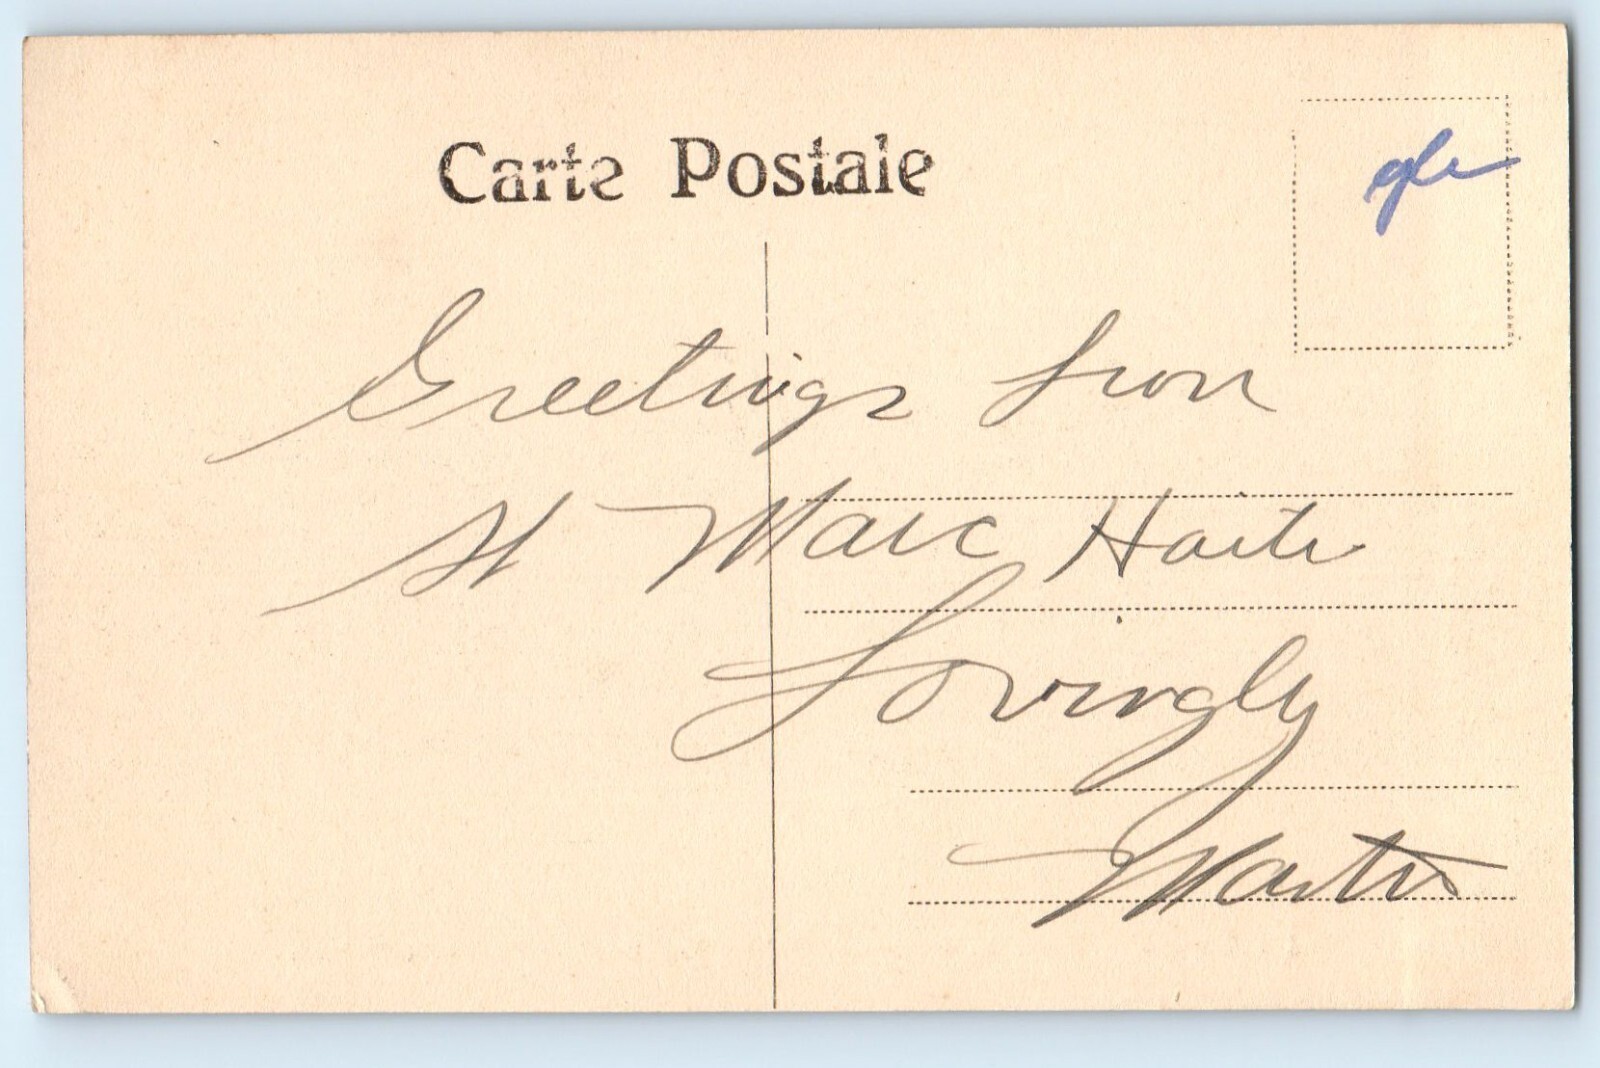 Carte Postale
Greetings from
St Marc Haiti
Lovingly